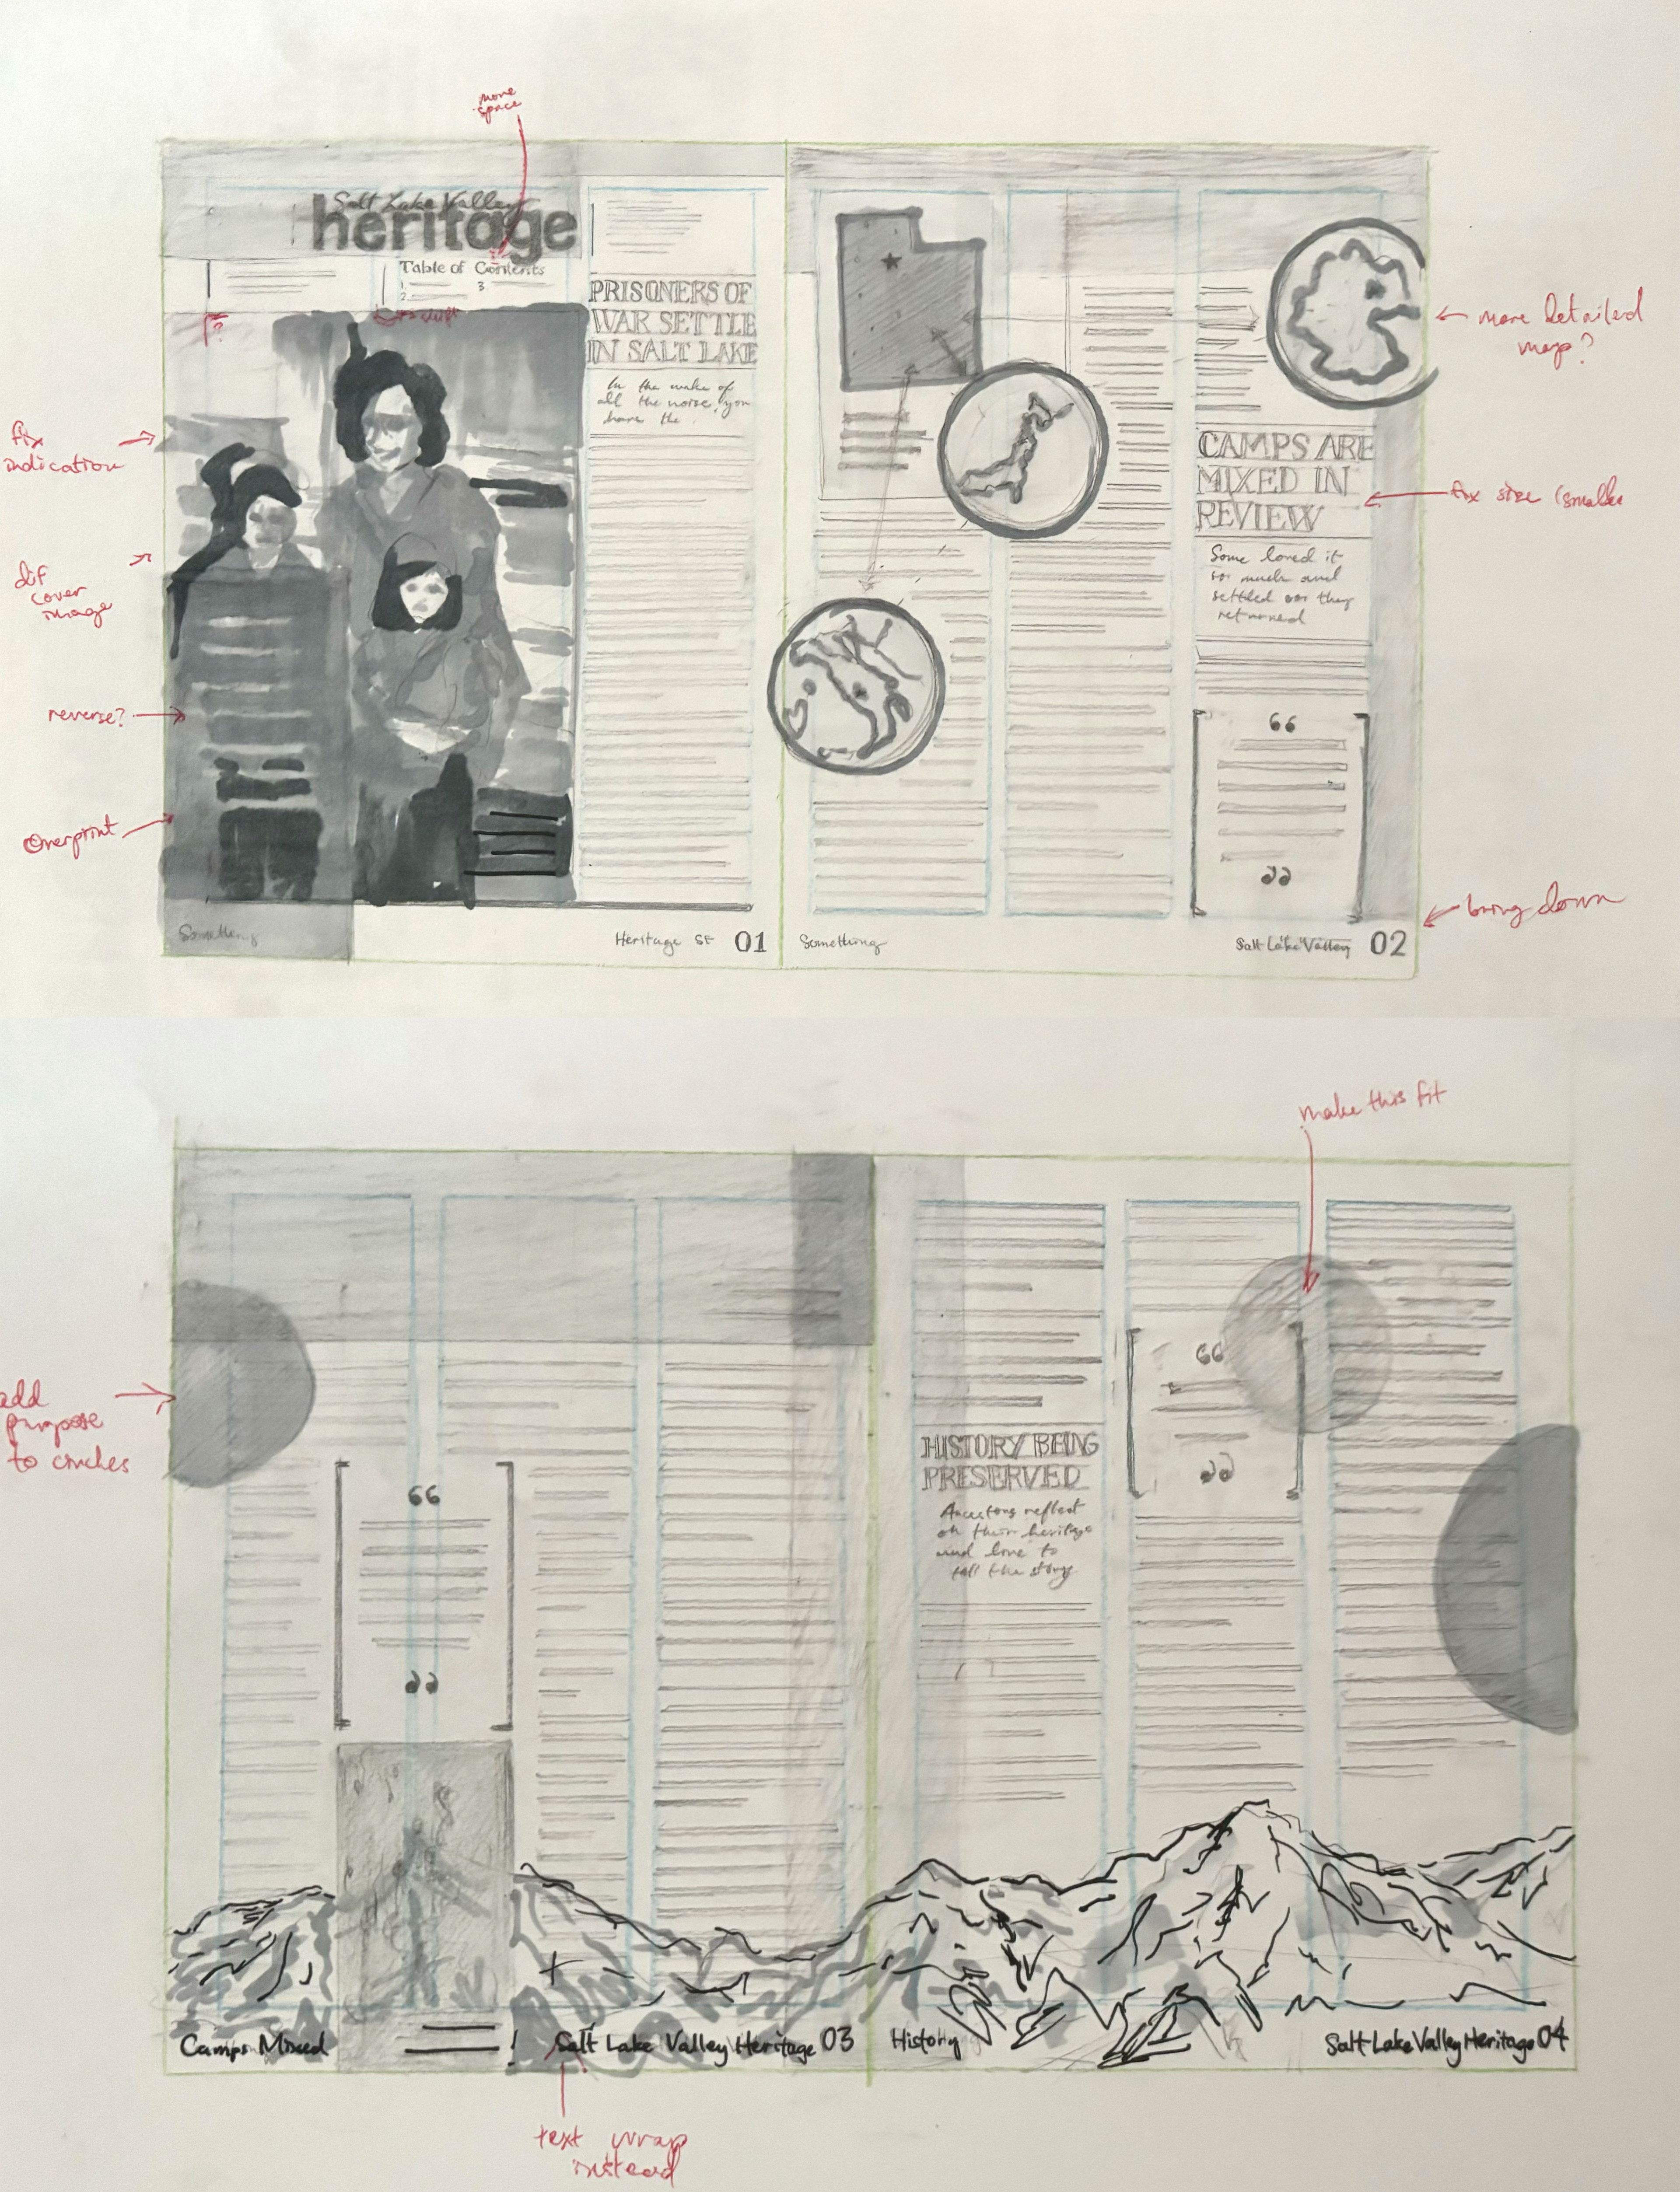 more
space
Salt Lake Valley
heritage
Table of Contents
1
2
3
PRISONERS OF
WAR SETTLE
IN SALT LAKE
In the wake of
all the noise, you
have the
fix
indication
dif
cover
image
reverse?
Overprint
Something
Heritage SF 01
more detailed
map?
CAMPS ARE
MIXED IN
REVIEW
fix size (smaller
Some loved it
so much and
settled as they
returned
“
”
bring down
Something
Salt Lake Valley 02
make this fit
add
purpose
to circles
“
”
“
”
HISTORY BEING
PRESERVED
Ancestors reflect
on their heritage
and love to
tell the story
Camps Mixed
Salt Lake Valley Heritage 03
History
Salt Lake Valley Heritage 04
text wrap
instead